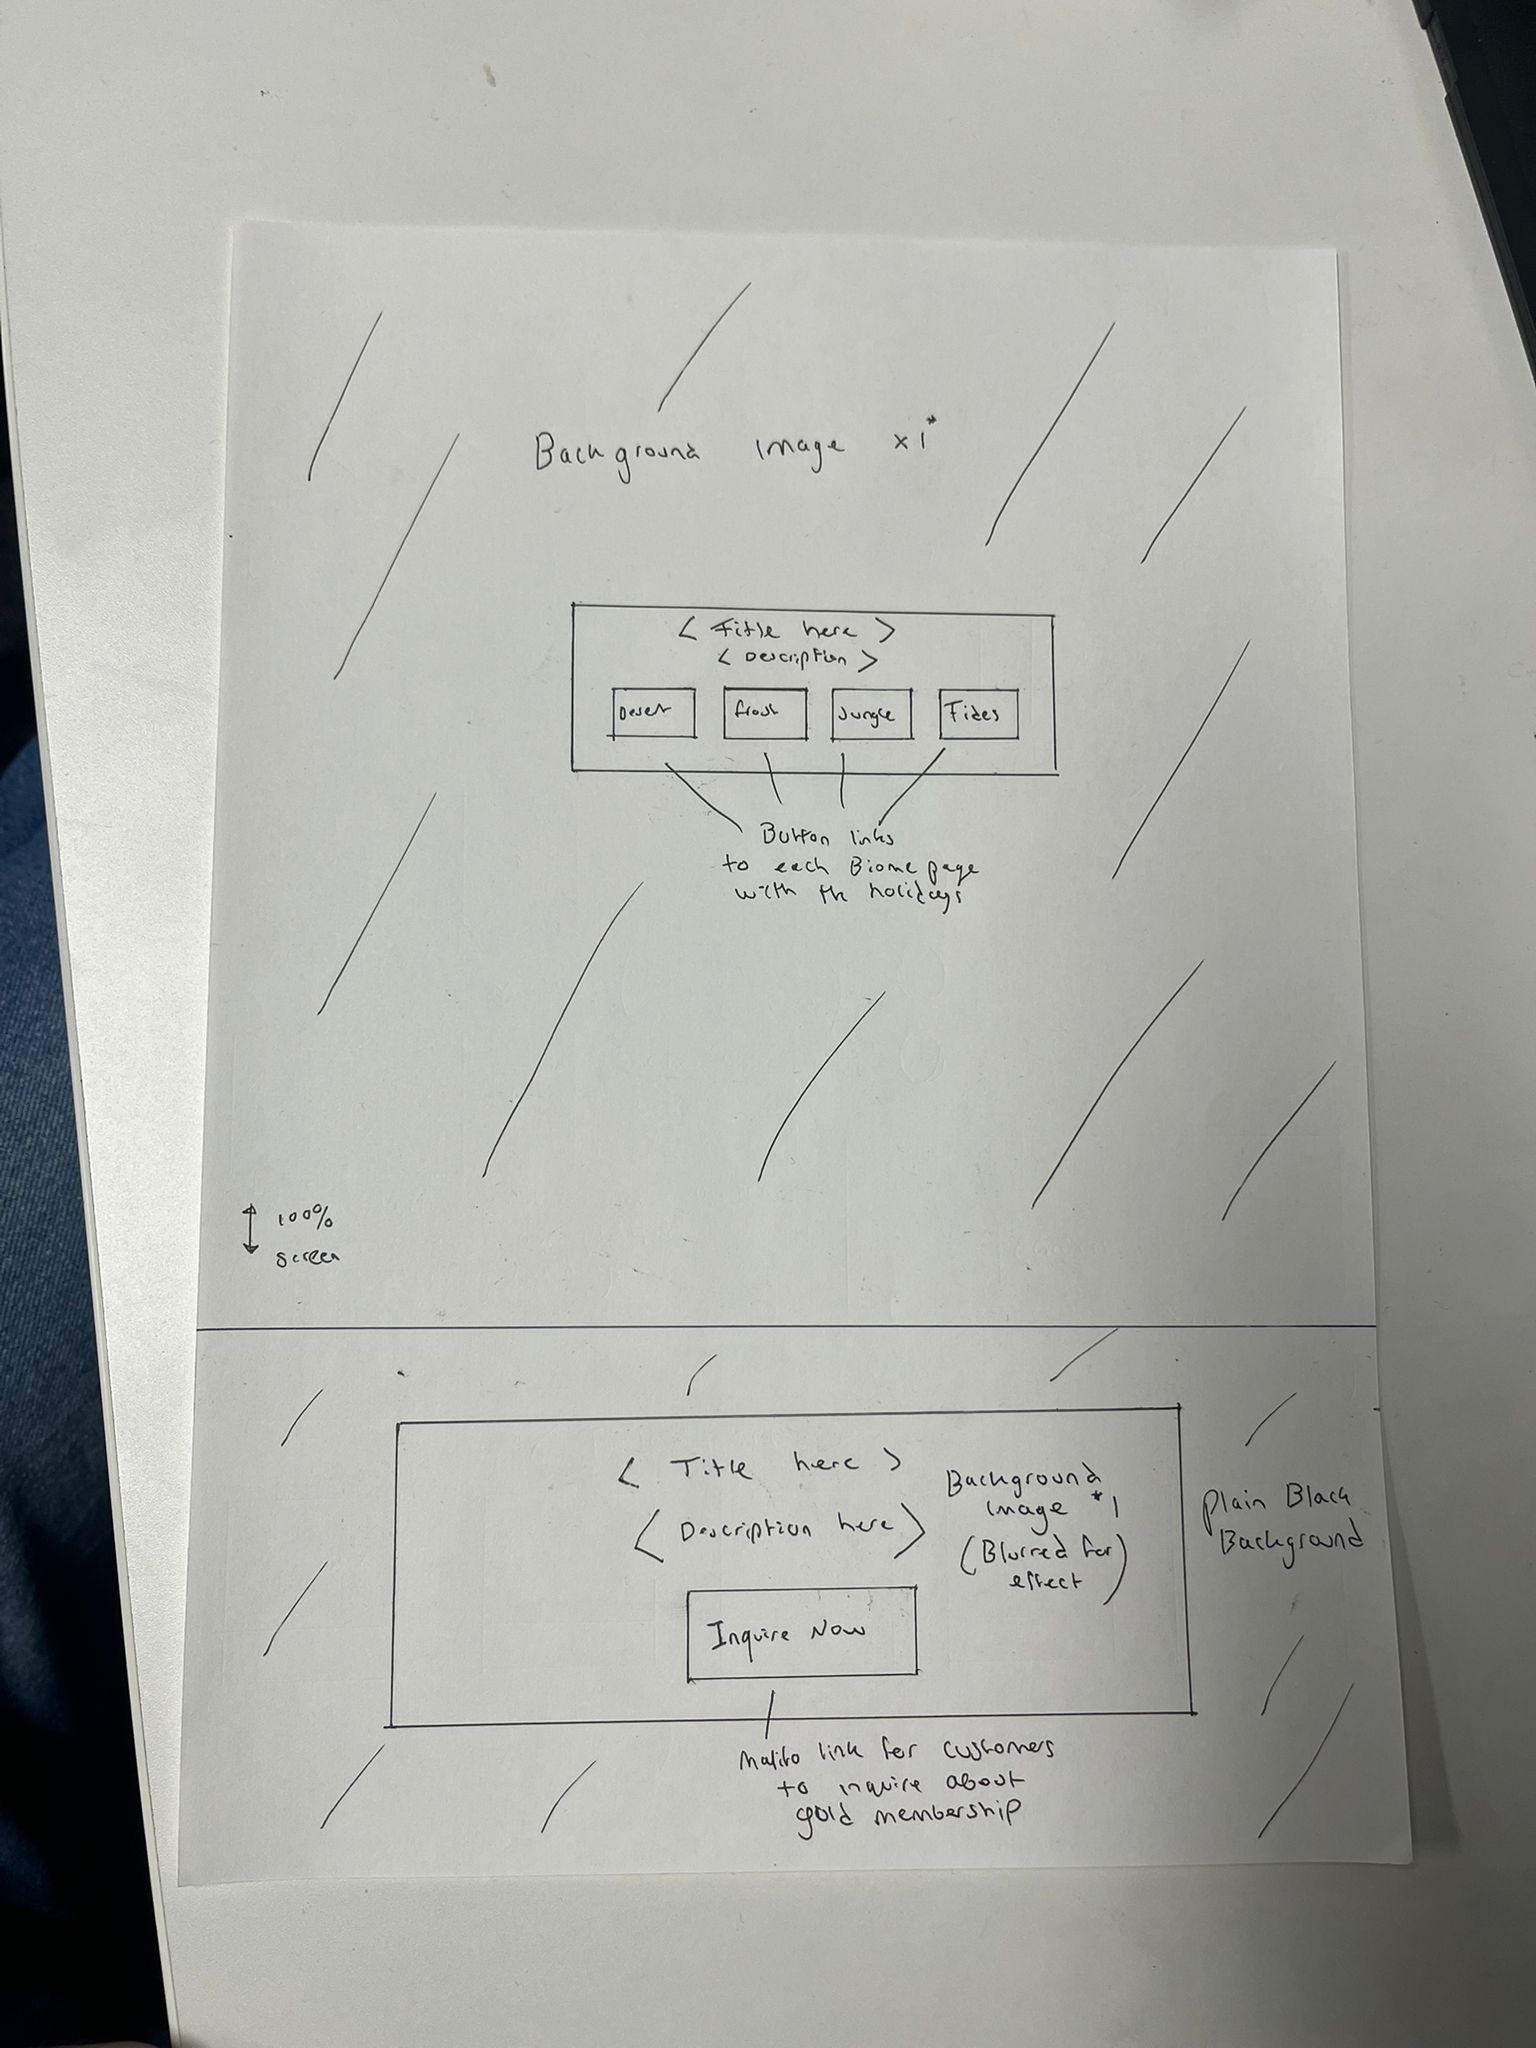 Background image x1*
< Title here >
< Description >
Desert
frost
Jungle
Tides
Button links
to each Biome page
with the holidays
100%
screen
< Title here >
< Description here >
Background
image *1
(Blurred for
effect)
Plain Black
Background
Inquire Now
Mailto link for customers
to inquire about
gold membership